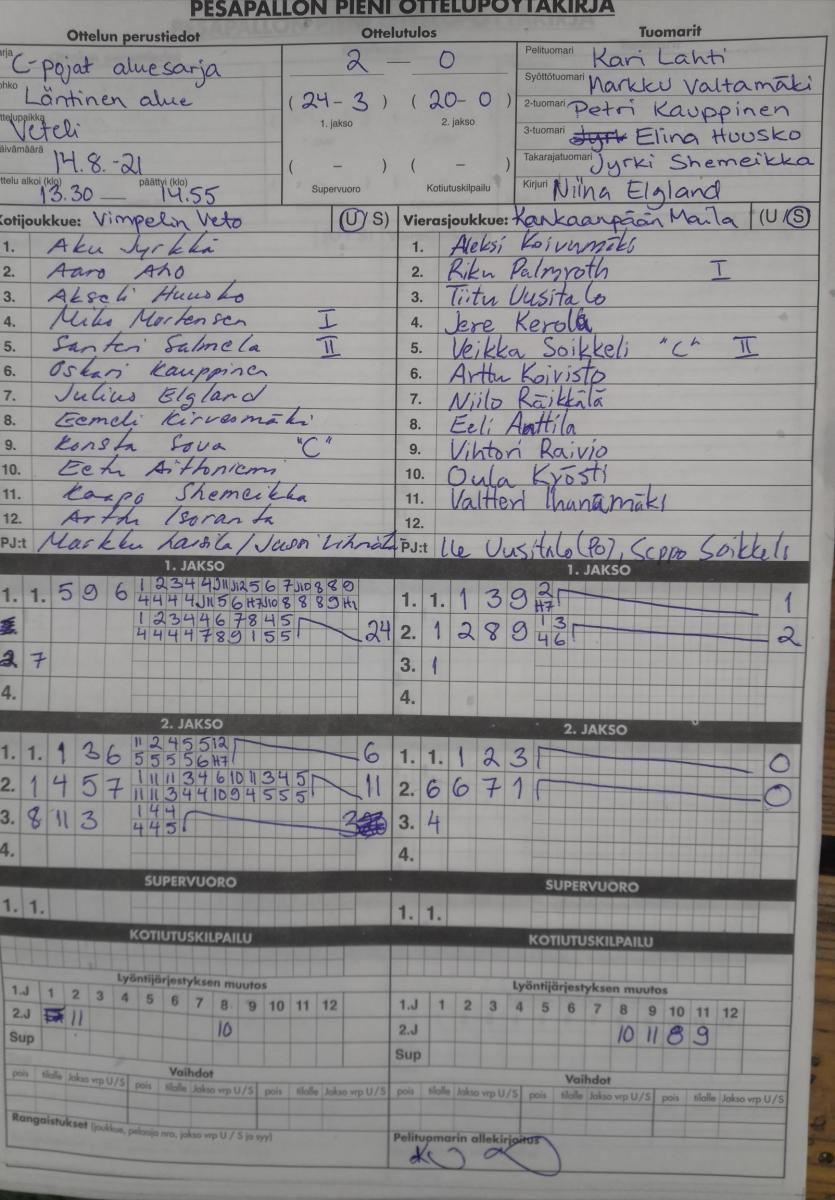 PESÄPALLON PIENI OTTELUPÖYTÄKIRJA
Ottelun perustiedot
C-pojat aluesarja
Läntinen alue
Veteli
14.8.-21
päättyi (klo)
13.30 — 14.55
Ottelutulos
2 — 0
(24-3) (20-0)
1. jakso 2. jakso
( - ) ( - )
Supervuoro Kotiutuskilpailu
Tuomarit
Pelituomari Kari Lahti
Syöttötuomari Markku Valtamäki
2-tuomari Petri Kauppinen
3-tuomari Elina Huusko
Takarajatuomari Jyrki Shemeikka
Kirjuri Niina Elgland
Kotijoukkue: Vimpelin Veto (U/S)
1. Aku Jyrkkä
2. Aaro Aho
3. Akseli Huusko
4. Miko Mortensen I
5. Santeri Salmela II
6. Oskari Kauppinen
7. Julius Elgland
8. Eemeli Kirvesmäki
9. Konsta Sova "C"
10. Eetu Aittoniemi
11. Kaapo Shemeikka
12. Arttu Isoranta
PJ:t Markku
Vierasjoukkue: Kankaanpään Maila (U/S)
1. Aleksi Koivumäki
2. Riku Palmroth I
3. Tiitu Uusitalo
4. Jere Kerola
5. Veikka Soikkeli "C" II
6. Arttu Koivisto
7. Niilo Räikkälä
8. Eeli Anttila
9. Vihtori Raivio
10. Oula Kyösti
11. Valtteri Ihanamäki
12.
PJ:t Ile Uusitalo (PO), Seppo Soikkeli
1. JAKSO
1. 1. 5 9 6 1 2 3 4 4 J11 J12 5 6 7 J10 8 8 9
4 4 4 4 J11 5 6 H7 J10 8 8 8 9 H2
1 2 3 4 4 6 7 8 4 5
4 4 4 4 7 8 9 1 5 5 24
2 7
4.
1. JAKSO
1. 1. 1 3 9 2 1
H7
2. 1 2 8 9 1 3 2
4 6
3. 1
4.
2. JAKSO
1. 1. 1 3 6 11 2 4 5 5 12 6
5 5 5 5 6 H7
2. 1 4 5 7 1 11 11 3 4 6 10 11 3 4 5 11
11 11 3 4 4 10 9 4 5 5 5
3. 8 11 3 1 4 4 3
4 4 5
4.
2. JAKSO
1. 1. 1 2 3 0
2. 6 6 7 1 0
3. 4
4.
SUPERVUORO
1. 1.
SUPERVUORO
1. 1.
KOTIUTUSKILPAILU
KOTIUTUSKILPAILU
Lyöntijärjestyksen muutos
1.J 1 2 3 4 5 6 7 8 9 10 11 12
2.J 11 10
Sup
Lyöntijärjestyksen muutos
1.J 1 2 3 4 5 6 7 8 9 10 11 12
2.J 10 11 8 9
Sup
Vaihdot
pois tilalle Jakso vrp U/S pois tilalle Jakso vrp U/S pois tilalle Jakso vrp U/S
Vaihdot
pois tilalle Jakso vrp U/S pois tilalle Jakso vrp U/S pois tilalle Jakso vrp U/S
Rangaistukset (joukkue, pelaaja nro, jakso vrp U / S ja syy)
Pelituomarin allekirjoitus